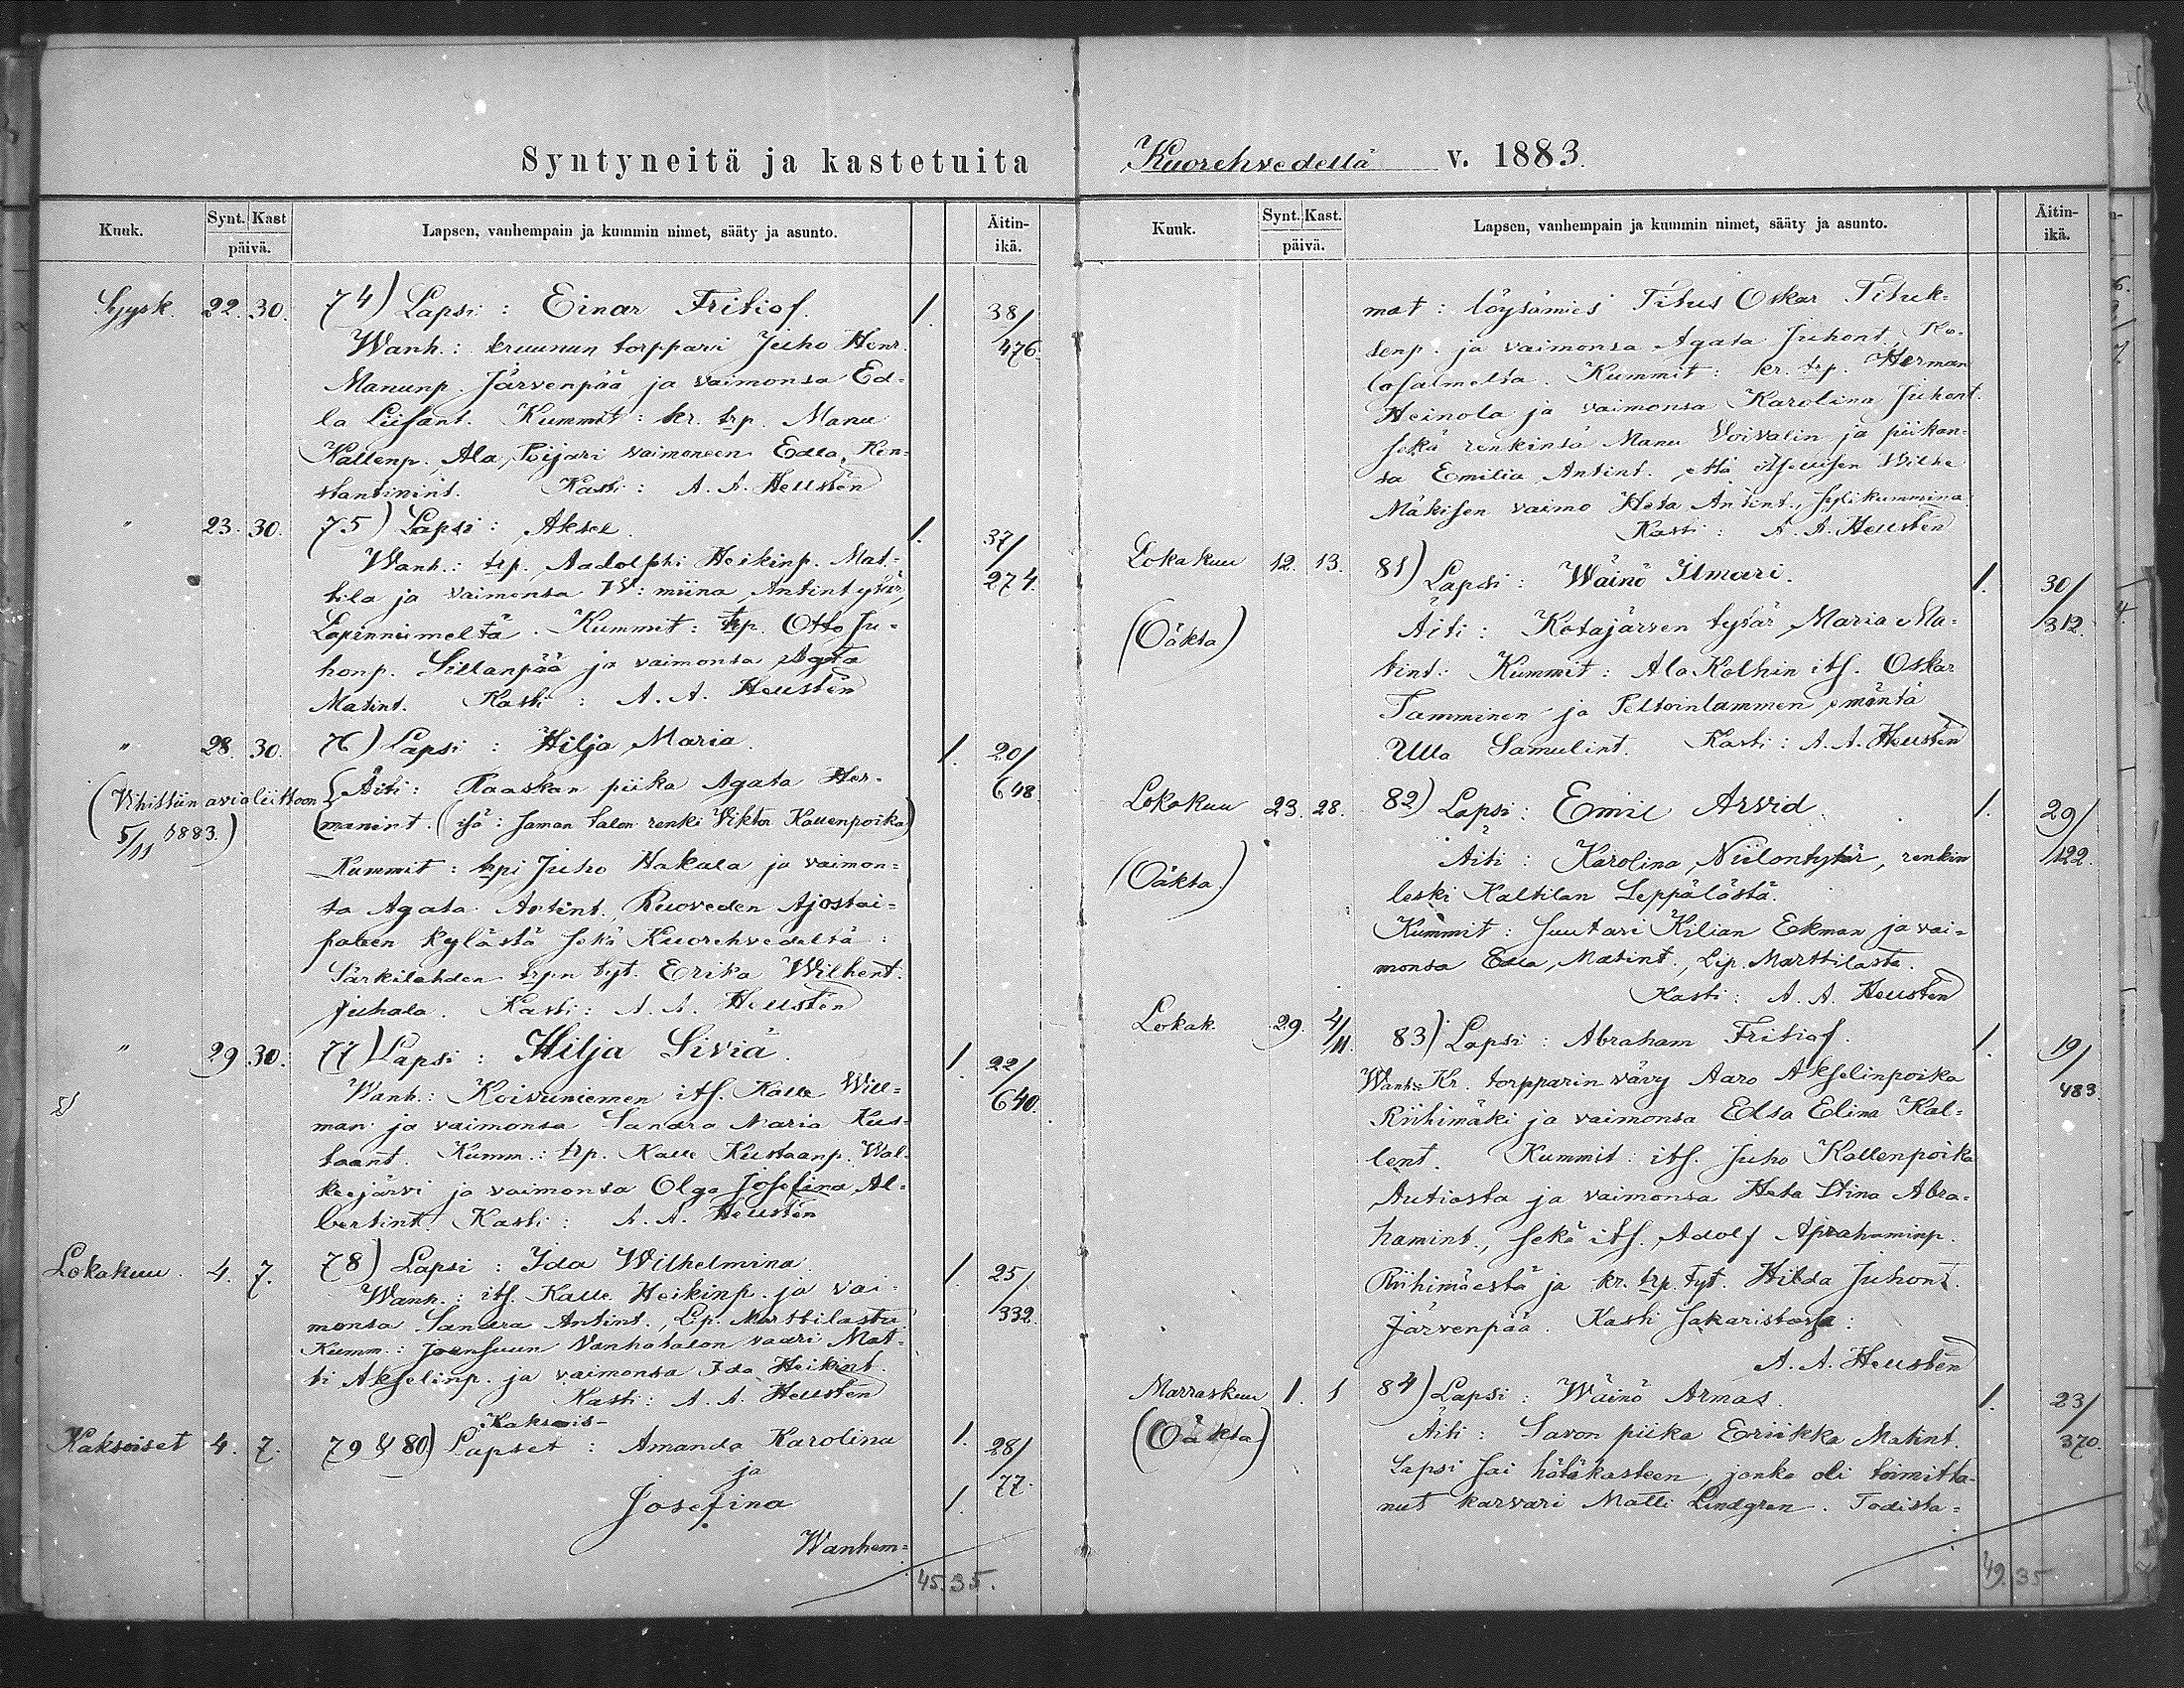 Syntyneitä ja kastetuita
Kuuk.
Synt. Kast
päivä.
Lapsen, vanhempain ja kummin nimet, sääty ja asunto.
Äitin-
ikä.
Syysk. 22. 30. 74) Lapsi: Einar Fritiof. 1. 38/
Wanh.: kruunun torppari Juho Henr. 476.
Manunp. Järvenpää ja vaimonsa Ed-
la Liisant. Kummit: kr. trp. Manu
Kallenp. Ala Poijari vaimoneen Edla Kon-
stantinint. Kasti: A. A. Hellstén
" 23. 30. 75) Lapsi: Aksel. 1. 37/
Wanh.: trp. Aadolphi Heikinp. Mat- 274.
tila ja vaimonsa W:miina Antintytär,
Lapinniemeltä. Kummit: trp. Otto Ju-
honp. Sillanpää ja vaimonsa Agata
Matint. Kasti: A. A. Hellstén
" 28. 30. 76) Lapsi: Hilja Maria. 1. 20/
Äiti: Raaskan piika Agata Her- 648
(Vihittiin avioliittoon
5/11 1883.)
manint. (isä: Saman talon renki Viktor Kallenpoika)
Kummit: trpi Juho Hakala ja vaimon-
sa Agata Antint. Ruoveden Ajostai-
paleen kylästä sekä Kuorehvedeltä:
Särkilahden trpn tyt. Erika Wilhent.
Juhala. Kasti: A. A. Hellstén
" 29 30. 77) Lapsi: Hilja Siviä. 1. 22/
Wanh.: Koivuniemen its. Kalle Will- 640.
man ja vaimonsa Sandra Maria Kus-
taant. Kumm.: trp. Kalle Kustaanp. Wal-
keejärvi ja vaimonsa Olga Josefina Al-
bertint. Kasti: A. A. Hellstén
Lokakuu. 4. 7. 78) Lapsi: Ida Wilhelmina. 1. 25/
Wanh.: its. Kalle Heikinp. ja vai- 332.
monsa Sandra Antint., Lip. Marttilasta
Kumm.: Joensuun Vanhatalon vaari Mat-
ti Akselinp. ja vaimonsa Ida Heikint.
Kasti: A. A. Hellstén
Kaksois-
Kaksoiset 4. 7. 79 & 80) Lapset: Amanda Karolina 1. 28/
ja 77.
Josefina 1.
Wanhem-
45. 35.
Kuorehvedellä v. 1883.
Kuuk.
Synt. Kast.
päivä.
Lapsen, vanhempain ja kummin nimet, sääty ja asunto.
Äitin-
ikä.
mat: löysämies Titus Oskar Tituk-
senp. ja vaimonsa Agata Juhont., Ko-
losalmelta. Kummit: kr. trp. Herman
Heinola ja vaimonsa Karolina Juhont.
sekä renkinsä Manu Voivalin ja piikan-
sa Emilia Antint. että itsellisen Wilhe
Mäkisen vaimo Heta Antint., sylikummina
Kasti: A. A. Hellstén
Lokakuu 12. 13. 81) Lapsi: Wäinö Ilmari. 1. 30/
(Oäkta) Äiti: Kotajärven tytär Maria Ma- 312.
tint. Kummit: Ala Kolhin its. Oskar
Tamminen ja Peltoinlammen emäntä
Ulla Samulint. Kasti: A. A. Hellstén
Lokakuu 23. 28. 82) Lapsi: Emil Arvid. 1. 29/
(Oäkta.) Äiti: Karolina Niilontytär, renkin 122.
leski Kaltilan Leppälöstä.
Kummit: Suutari Kilian Ekman ja vai-
monsa Edla Matint., Lip. Marttilasta.
Kasti: A. A. Hellstén
Lokak. 29. 4/11. 83) Lapsi: Abraham Fritiof. 1. 19/
Wanh: Kr. torpparin vävy Aaro Akselinpoika 483.
Riihimäki ja vaimonsa Elsa Elina Kal-
lent. Kummit: its. Juho Kallenpoika
Autiosta ja vaimonsa Heta Stina Abra-
hamint., sekä its. Adolf Aprahaminp.
Riihimäestä ja kr. trp. tyt. Hilda Juhont.
Järvenpää. Kasti Sakaristossa:
A. A. Hellstén
Marraskuu 1. 1 84) Lapsi: Wäinö Armas. 1. 23/
(Oäkta) Äiti: Savon piika Eriikka Matint. 370.
Lapsi sai hätäkasteen, jonka oli toimitta-
nut karvari Matti Lindgren. Todista-
49. 35